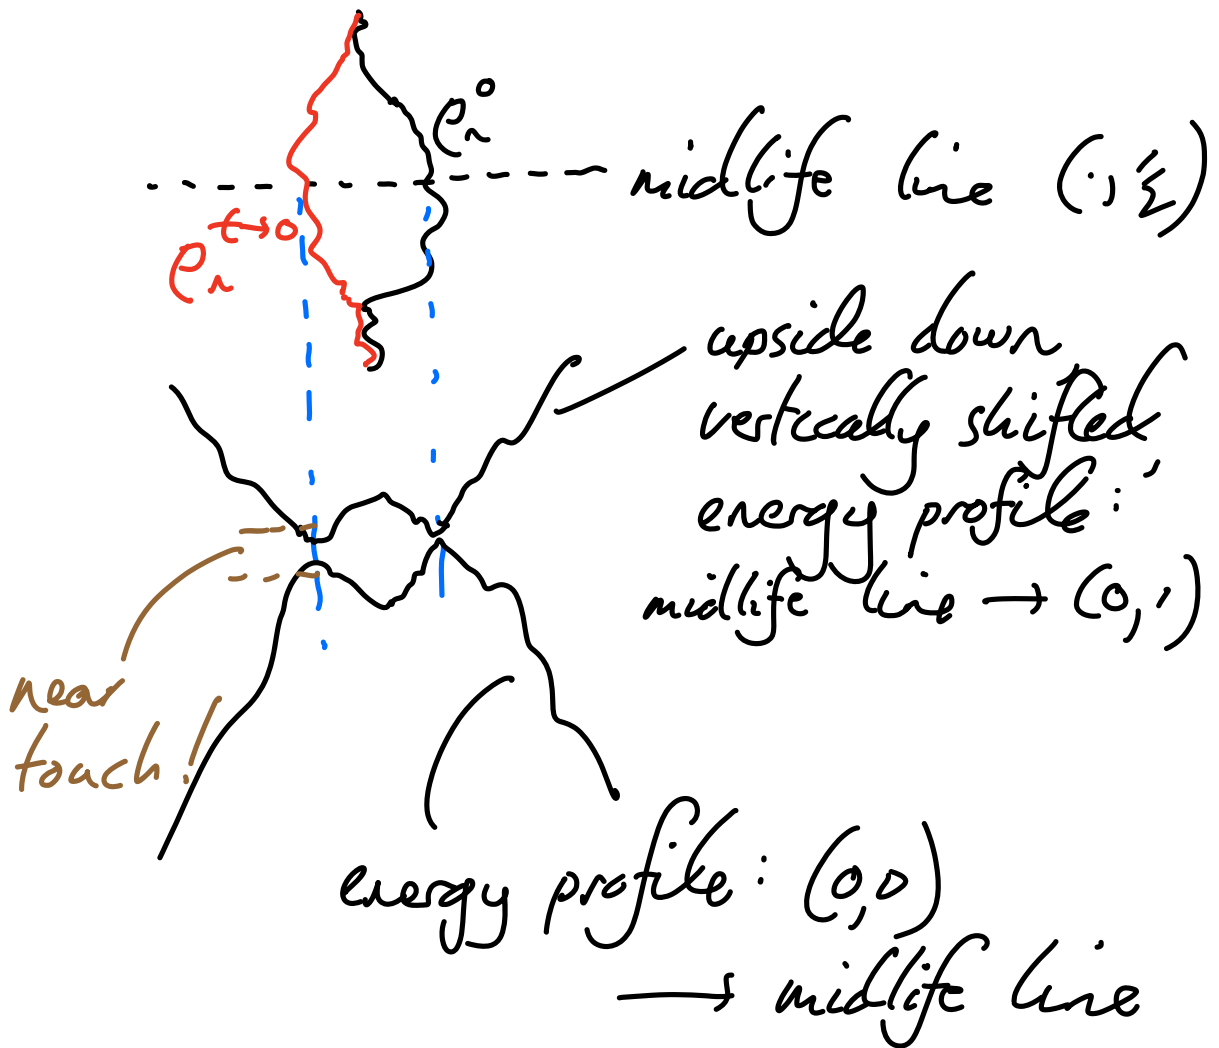 ρₙ⁰
midlife line (·, ½)
ρₙ^{t→0}
upside down
vertically shifted
energy profile:
midlife line → (0,1)
near
touch!
energy profile: (0,0)
→ midlife line